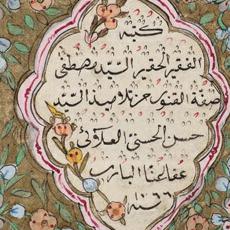 كتبه
الفقير الحقير السيد مصطفى
صفة الفنوى من تلاميذ السيد
حسن الحسنى العلائى
عفا عنهما البارى